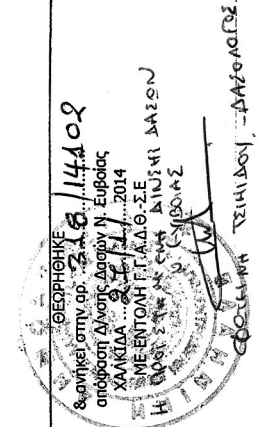 ΘΕΩΡΗΘΗΚΕ
& ανήκει στην αρ. 318/14102
απόφαση Δ/νσης Δασών Ν. Ευβοίας
ΧΑΛΚΙΔΑ 2014
ΜΕ ΕΝΤΟΛΗ Γ.Γ.Α.Δ.Θ.-Σ.Ε
Η ΠΡΟΪΣΤ/ΝΗ ΔΑΣΩΝ
Ν. ΕΥΒΟΙΑΣ
ΦΩΤΕΙΝΗ ΤΣΙΗΙΔΟΥ - ΔΑΣΟΛΟΓΟΣ